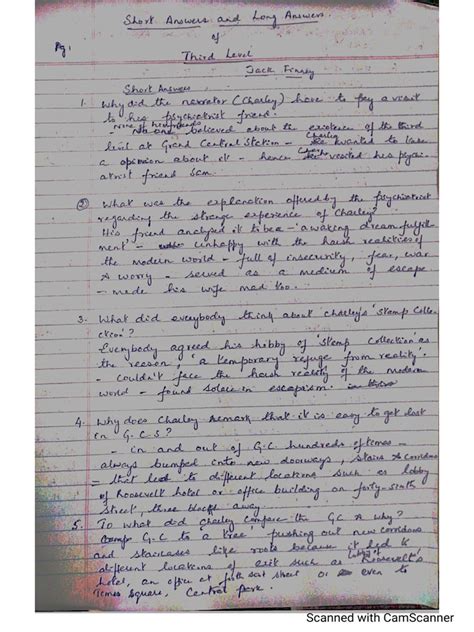 Short Answers and Long Answers
of
Pg 1
Third Level
Jack Finney
Short Answers
1. Why did the narrator (Charley) have to pay a visit
to his psychiatrist friend.
None of his friends
- No one believed about the existence of the third
level at Grand Central Station - Charley wanted to take
a opinion about it - hence Charley visited his psychi-
atrist friend Sam.
2 What was the explanation offered by the psychiatrist
regarding the strange experience of Charley?
His friend analyzed it to be a - 'a waking dream fulfill-
ment - unhappy with the harsh realities of
the modern world - full of insecurity, fear, war
& worry - served as a medium of escape
- made his wife mad too.
3. What did everybody think about Charley's 'Stamp Colle-
ction'?
Everybody agreed his hobby of 'stamp collection' as
the reason, 'a temporary refuge from reality'.
- couldn't face the harsh reality of the modern
world - found solace in escapism.
4. Why does Charley remark that it is easy to get lost
in G.C.S?
- in and out of G.C hundreds of times -
always bumped into new doorways, stairs & corridors
- that led to different locations such as lobby
of Roosevelt hotel or office building on forty-sixth
street, three blocks away.
5. To what did Charley compare the GC & why?
G.C to a tree pushing out new corridors
and staircases like roots because it led to
different locations of exit such as lobby of Roosevelt's
hotel, an office at street or even to
Times Square, Central park.
Scanned with CamScanner